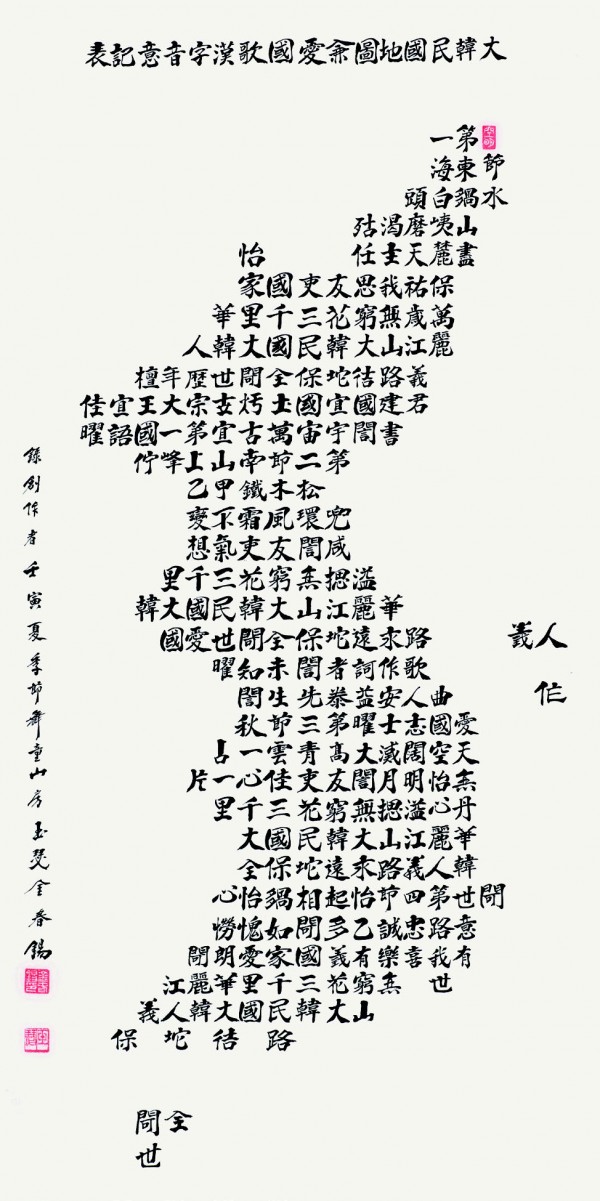 大韓民國地圖兼愛國歌漢字音意記表
第一
節
東海
水鍋白頭
山峓磨渴
盡麓天士任怡
保祐我思友吏國家
萬歲無窮花三千里華
麗江山大韓民國大韓人
義路徍坨保全閜世歷年檀
君建國宜國土玄宗大王宜佳
書誾宇宙萬古宜第一國語曜
第二節南山上峰佇
松木鐵甲乙
兜環風霜不變
咸誾友吏氣想
溢摁無窮花三千里
華麗江山大韓民國大韓
人義
路永遠坨保全閜世愛國
歌作訶者誾未知曜
作
曲人安益泰先生誾
愛國志士曜第三節秋
天空闊滅大高青雲一
無怡明月誾友吏佳心一片
丹心溢摁無窮花三千里
華麗江山大韓民國大
韓人義路永遠坨保全
閜世第四節怡起相鍋怡心
意路忠誠乙多閜如愧憦
有我喜樂有義國家愛朗閜
世無窮花三千里華麗江
山大韓民國大韓人義
路徍坨保
全
閜
世
錄創作者壬寅夏季節舞童山房金春錫